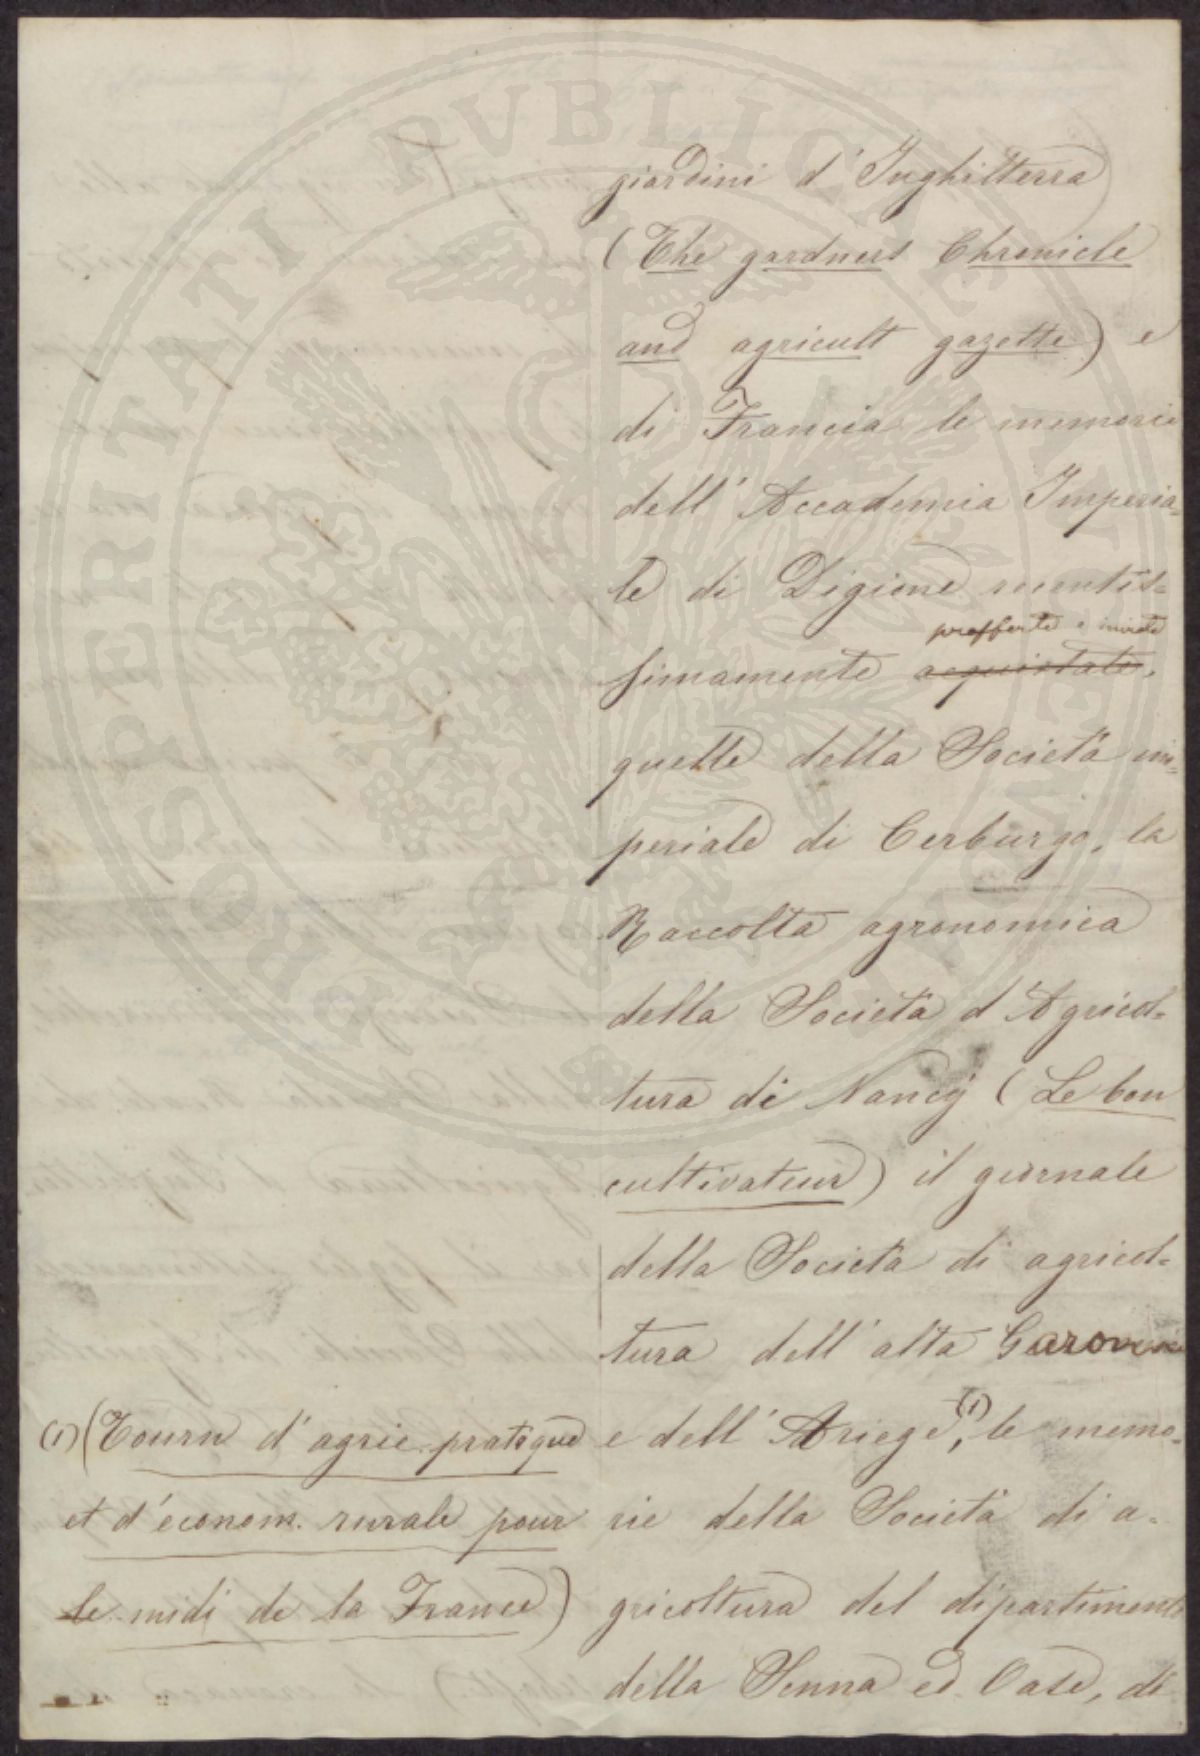 giardini d'Inghilterra
(The gardners Chronicle
and agricult gazette) e
di Francia le memorie
dell'Accademia Imperia=
le di Digione recentis=
profferte e inviate
simamente acquistate,
quelle della Società im=
periale di Cerburgo, la
Raccolta agronomica
della Società d'Agricol=
tura di Nancy (Le bon
cultivateur) il giornale
della Società di agricol=
tura dell'alta Garonna
e dell'Ariege, (1) le memo=
rie della Società di a=
gricoltura del dipartimento
della Senna ed Oase, di
(1) (Journ d'agric. pratique
et d'économ. rurale pour
le midi de la France)
PROSPERITATI PVBLICAE